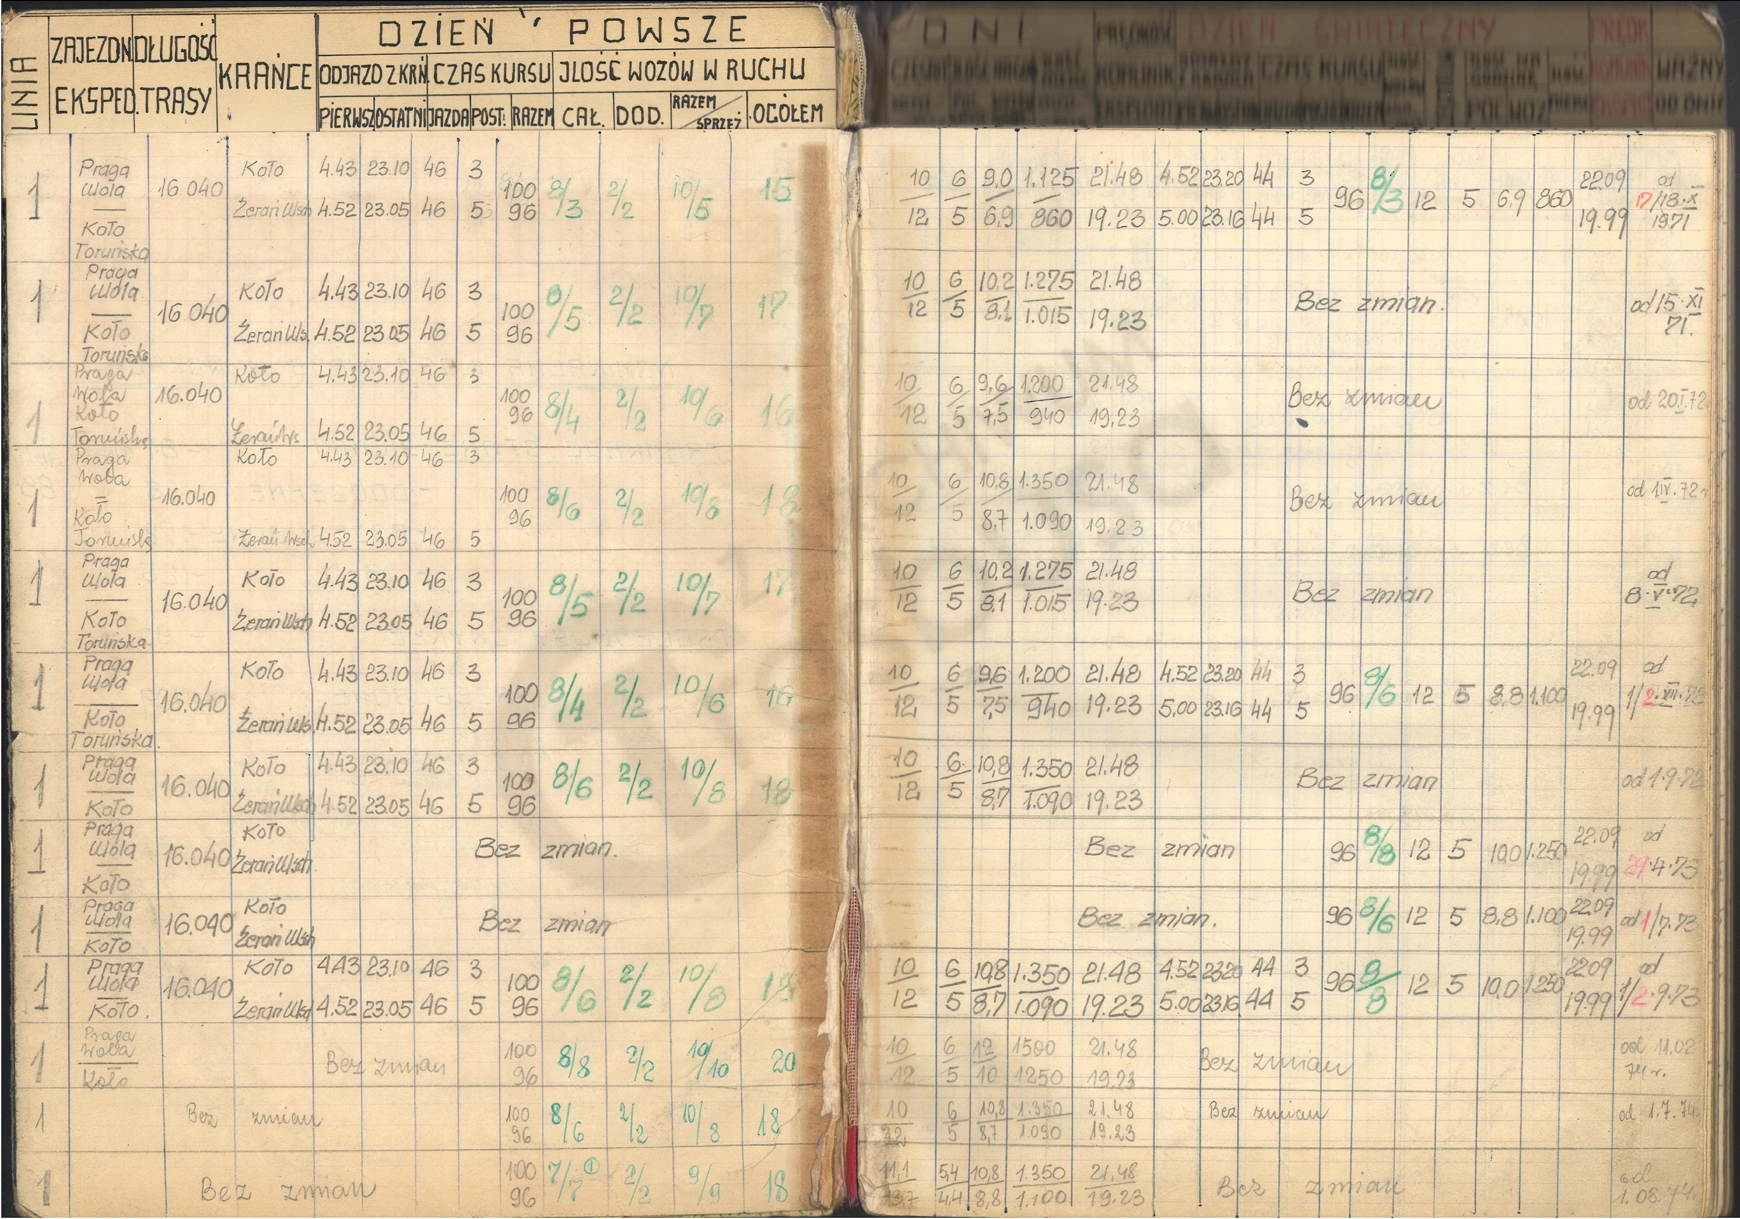 LINIA ZAJEZDN. EKSPED. DŁUGOŚĆ TRASY KRAŃCE DZIEŃ POWSZE
ODJAZD Z KRŃ. CZAS KURSU JLOŚĆ WOZÓW W RUCHU
PIERWSZ OSTATNI JAZDA POST. RAZEM CAŁ. DOD. RAZEM/SPRZĘŻ. OGÓŁEM
DNI DZIEŃ ŚWIĄTECZNY
CZAS KURSU WAŻNY OD DNIA
1 Praga Wola — Koło Toruńska 16.040
Koło 4.43 23.10 46 3
Żerań Wsch 4.52 23.05 46 5
100 96 8/3 2/2 10/5 15
10 6 9,0 1.125 21.48 4.52 23.20 44 3
12 5 6,9 860 19.23 5.00 23.16 44 5
96 8/3 12 5 6,9 860 22.09 19.99 od 17/18.X 1971
1 Praga Wola — Koło Toruńska 16.040
Koło 4.43 23.10 46 3
Żerań Ws. 4.52 23.05 46 5
100 96 8/5 2/2 10/7 17
10 6 10,2 1.275 21.48
12 5 8,1 1.015 19.23
Bez zmian. od 15.XI 71.
1 Praga Wola Koło Toruńska 16.040
Koło 4.43 23.10 46 3
Żerań Ws 4.52 23.05 46 5
100 96 8/4 2/2 10/6 16
10 6 9,6 1.200 21.48
12 5 7,5 940 19,23
Bez zmian od 20.I.72
1 Praga Wola = Koło Toruńska 16.040
Koło 4.43 23.10 46 3
Żerań Wsch 4.52 23.05 46 5
100 96 8/6 2/2 10/8 18
10 6 10,8 1.350 21.48
12 5 8,7 1.090 19.23
Bez zmian od 1.IV.72 r
1 Praga Wola — Koło Toruńska 16.040
Koło 4.43 23.10 46 3
Żerań Wsch 4.52 23.05 46 5
100 96 8/5 2/2 10/7 17
10 6 10,2 1.275 21.48
12 5 8,1 1.015 19.23
Bez zmian od 8.V.72
1 Praga Wola — Koło Toruńska 16.040
Koło 4.43 23.10 46 3
Żerań Ws. 4.52 23.05 46 5
100 96 8/4 2/2 10/6 16
10 6 9,6 1.200 21.48 4.52 23.20 44 3
12 5 7,5 940 19.23 5.00 23.16 44 5
12 5 8,8 1.100 22.09 19.99 od
1 Praga Wola — Koło 16.040
Koło 4.43 23.10 46 3
Żerań Wsch 4.52 23.05 46 5
100 96 8/6 2/2 10/8 18
10 6 10,8 1.350 21.48
12 5 8,7 1.090 19.23
Bez zmian od 1.9.72
1 Praga Wola — Koło 16.040
Koło
Żerań Wsch
Bez zmian.
Bez zmian 96 8/8 12 5 10,0 1.250 22.09 19.99 od 29.4.73
1 Praga Wola — Koło 16.040
Koło
Żerań Wsch
Bez zmian
Bez zmian. 96 8/6 12 5 8.8 1.100 22.09 19.99 od 1/7.73
1 Praga Wola — Koło. 16.040
Koło 4.43 23.10 46 3
Żerań Wsch 4.52 23.05 46 5
100 96 8/6 2/2 10/8 18
10 6 10,8 1.350 21.48 4.52 23.20 44 3
12 5 8,7 1.090 19.23 5.00 23.16 44 5
12 5 10,0 1.250 22.09 19.99 od 1/2.9.73
1 Praga Wola — Koło
Bez zmian 100 96 8/8 2/2 10/10 20
10 6 12 1500 21.48
12 5 10 1250 19,23
Bez zmian od 11.02 74 r.
1 Bez zmian 100 96 8/6 2/2 10/8 18
10 6 10,8 1.350 21.48
12 5 8,7 1.090 19.23
Bez zmian od 1.7.74
1 Bez zmian 100 96 7/7 ① 2/2 9/9 18
11,1 5,4 10,8 1.350 21.48
13,7 4,4 8,8 1.100 19.23
Bez zmian od 1.08.74